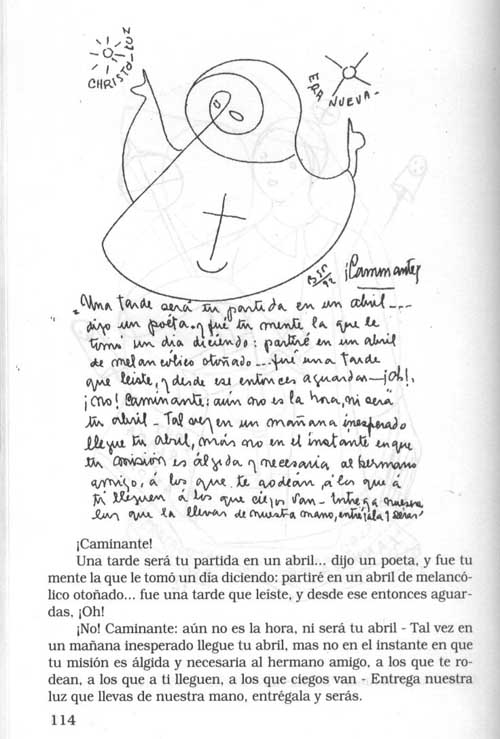 CHRISTO-LUZ
ERA NUEVA-
BSP/92
¡Caminante!
"Una tarde será tu partida en un abril....
dijo un poéta. y fué tu mente la que le
tomó un día diciendo: partiré en un abril
de melancólico otoñado....fué una tarde
que leiste, y desde ese entonces aguardas—¡Oh!,
¡No! Caminante: aún no es la hora, ni será
tu abril - Tal vez en un mañana inesperado
llegue tu abril, más no en el instante en que
tu misión es álgida y necesaria al hermano
amigo, á los que te rodeán, á los que á
ti lleguen á los que ciegos van - Entrega nuestra
luz que la llevas de nuestra mano, entrégala y serás"
¡Caminante!
Una tarde será tu partida en un abril... dijo un poeta, y fue tu
mente la que le tomó un día diciendo: partiré en un abril de melancó-
lico otoñado... fue una tarde que leiste, y desde ese entonces aguar-
das, ¡Oh!
¡No! Caminante: aún no es la hora, ni será tu abril - Tal vez en
un mañana inesperado llegue tu abril, mas no en el instante en que
tu misión es álgida y necesaria al hermano amigo, a los que te ro-
dean, a los que a ti lleguen, a los que ciegos van - Entrega nuestra
luz que llevas de nuestra mano, entrégala y serás.
114